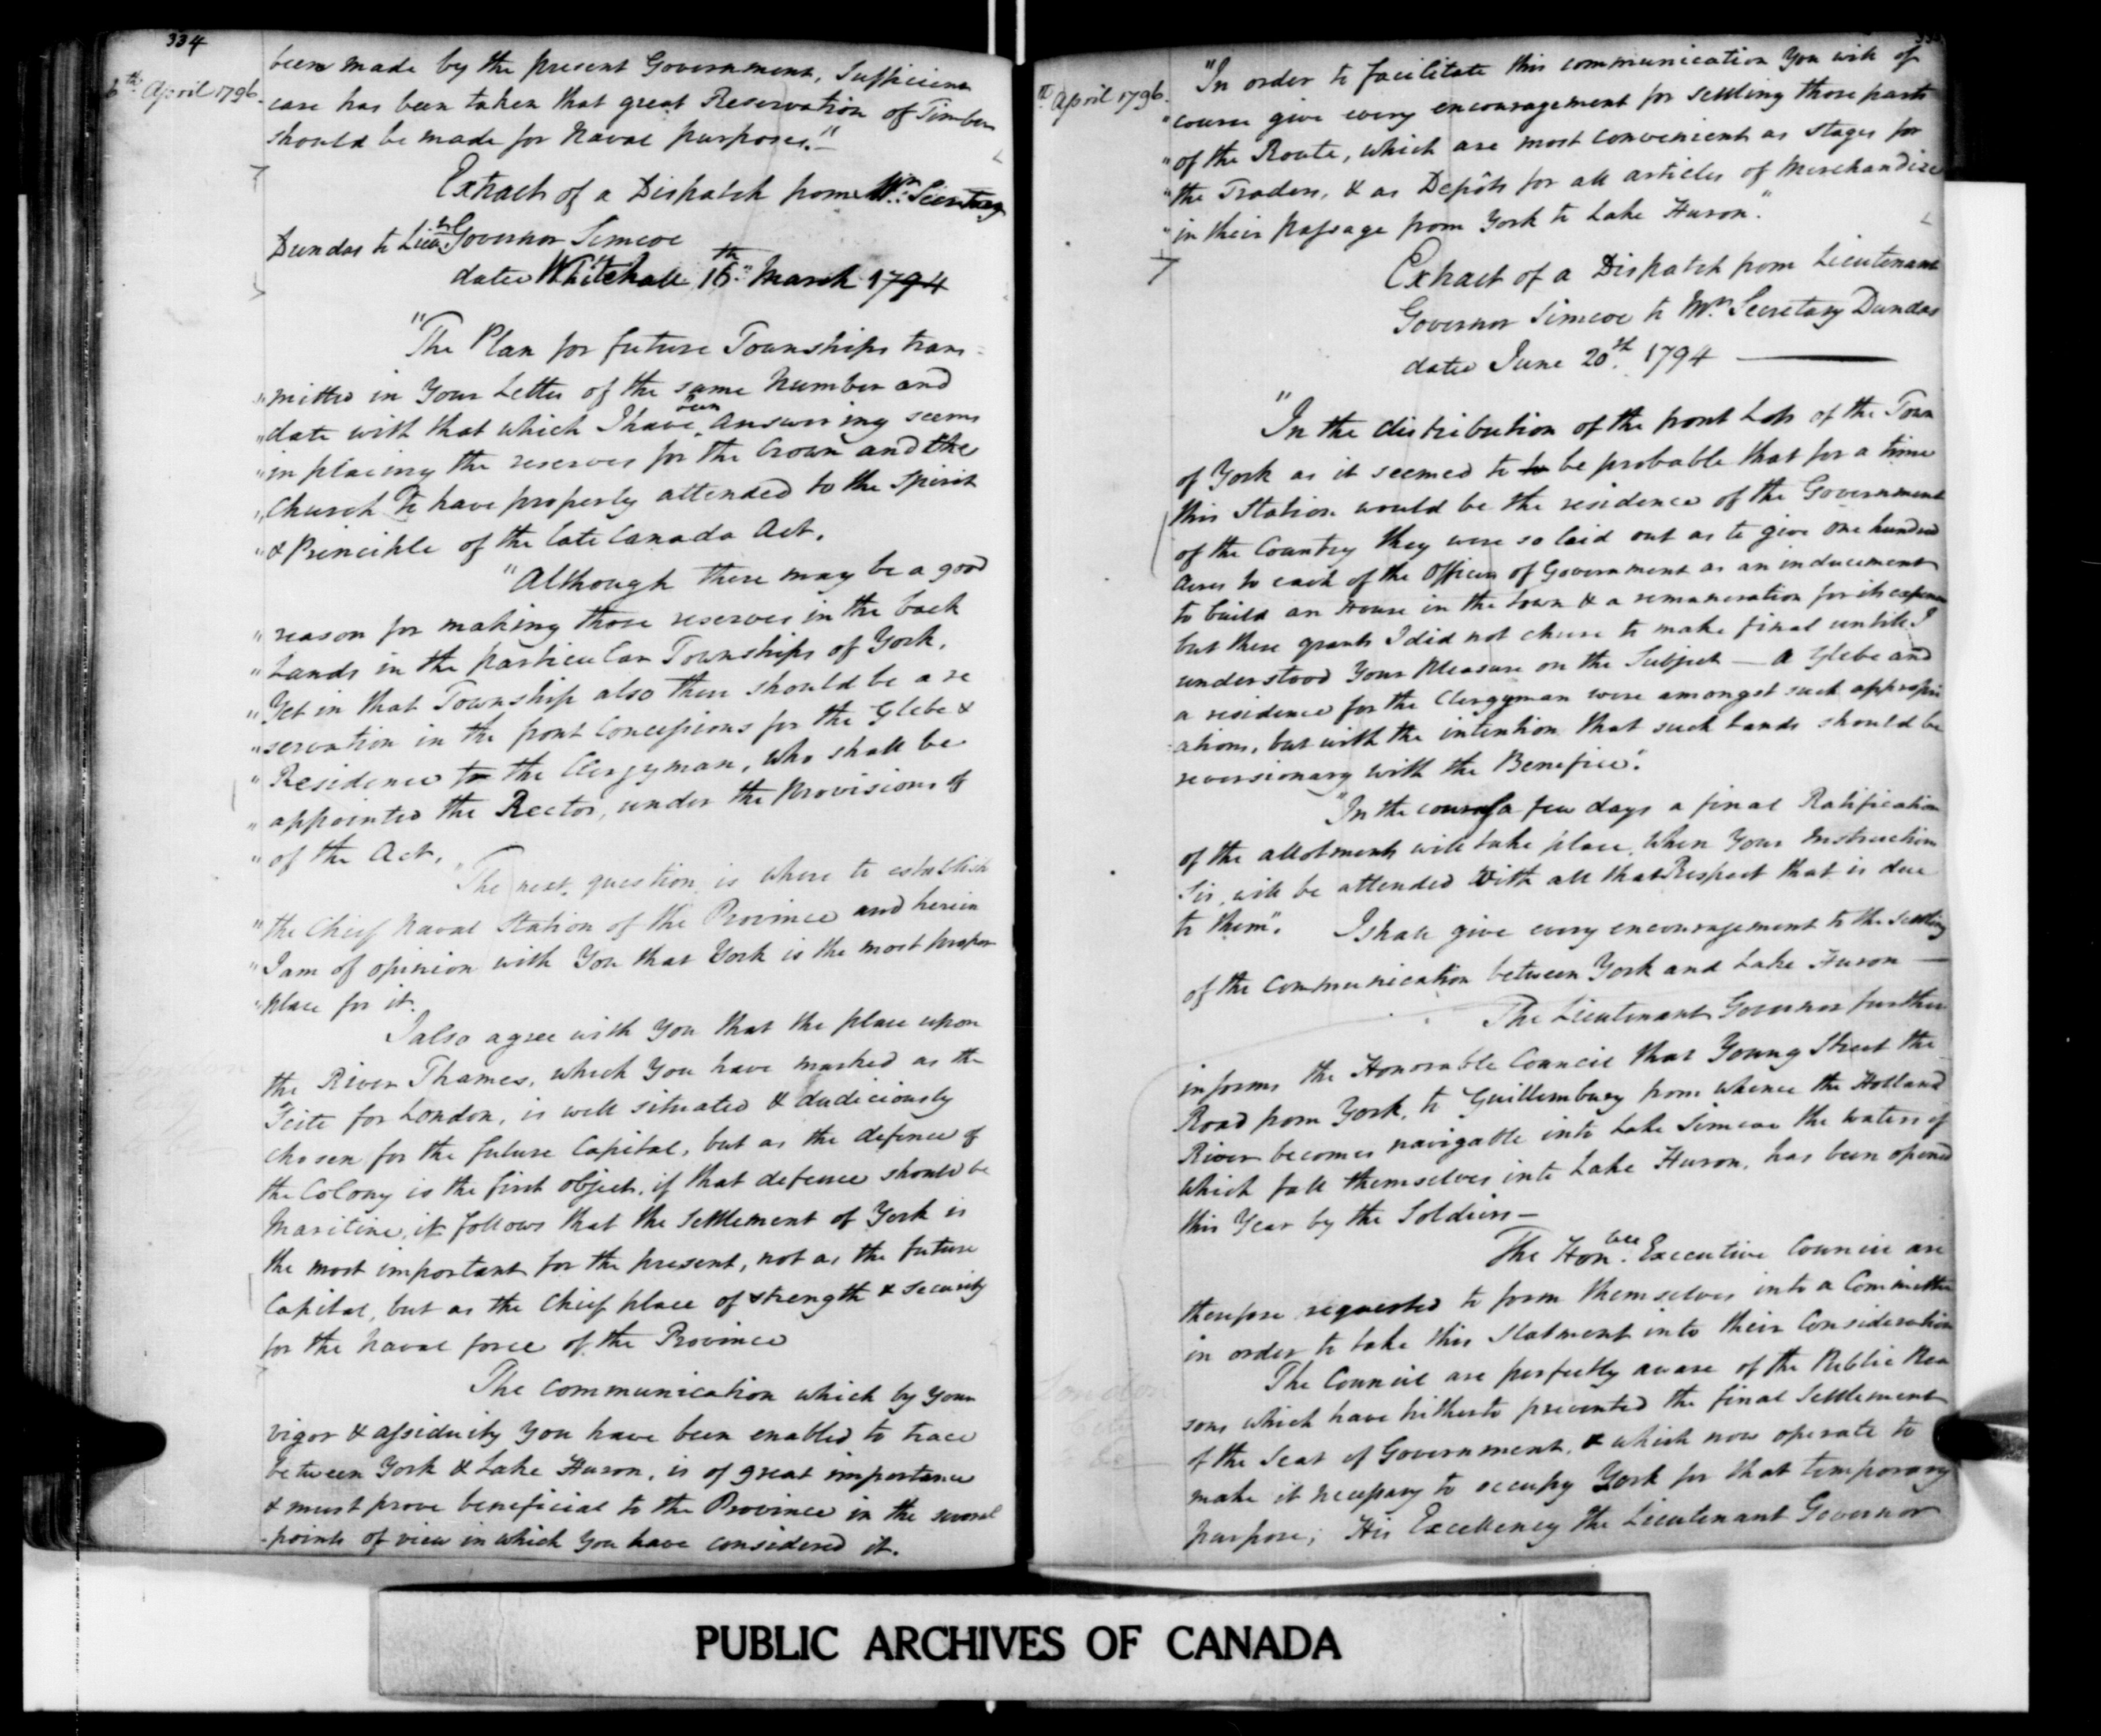 334
6th April 1796.
been made by the present Government, Sufficient
care has been taken that great Reservation of Timber
should be made for Naval purposes."
Extract of a Dispatch from Mr. Secretary
Dundas to Lieut Governor Simcoe
dated Whitehall 16th March 1794
"The Plan for future Townships trans=
"mitted in Your Letter of the same Number and
"date with that which I have been Answering seems
"in placing the reserves for the Crown and the
"Church to have properly attended to the Spirit
"& Principle of the late Canada Act.
"Although there may be a good
"reason for making those reserves in the back
"Lands in the particular Townships of York,
"Yet in that Township also there should be a re
"servation in the front Concessions for the Glebe &
"Residence to the Clergyman, who shall be
"appointed the Rector, under the Provisions of
"of the Act.
"The next question is where to establish
"the Chief Naval Station of the Province and herein
"I am of opinion with You that York is the most proper
"place for it.
I also agree with You that the place upon
the River Thames, which You have marked as the
Scite for London, is well situated & Judiciously
chosen for the future Capital, but as the defence of
the Colony is the first object, if that defence should be
Maritime, it follows that the Settlement of York is
the most important for the present, not as the future
Capital, but as the Chief place of strength & security
for the Naval force of the Province
The communication which by Your
vigor & assiduity You have been enabled to trace
between York & Lake Huron, is of great importance
& must prove beneficial to the Province in the several
points of view in which You have considered it.
April 1796.
"In order to facilitate this communication You will of
"course give every encouragement for settling those parts
"of the Route, which are most convenient as Stages for
"the Traders, & as Depôts for all articles of Merchandize
"in their Passage from York to Lake Huron."
Extract of a Dispatch from Lieutenant
Governor Simcoe to Mr. Secretary Dundas
dated June 20th. 1794
"In the distribution of the front Lots of the Town
of York as it seemed to to be probable that for a time
this Station would be the residence of the Government
of the Country they were so laid out as to give one hundred
Acres to each of the Officers of Government as an inducement
to build an House in the town & a remuneration for its expence
but these grants I did not chuse to make final until I
understood Your Pleasure on the Subject — A Glebe and
a residence for the Clergyman were amongst such appropri
=ations, but with the intention that such Lands should be
reversionary with the Benefice."
"In the course of a few days a final Ratification
of the allotments will take place, When Your Instructions
Sir, will be attended With all that Respect that is due
to them". I shall give every encouragement to the settling
of the Communication between York and Lake Huron —
The Lieutenant Governor further
informs the Honorable Council that Young Street the
Road from York, to Guillembury from whence the Holland
River becomes navigable into Lake Simcoe the waters of
which fall themselves into Lake Huron, has been opened
this Year by the Soldiers —
The Honble. Executive Council are
therefore requested to form themselves into a Committee
in order to take this Statment into their Consideration
The Council are perfectly aware of the Public Rea
sons which have hitherto prevented the final Settlement
of the Seat of Government, & which now operate to
make it necessary to occupy York for that temporary
purpose; His Excellency the Lieutenant Governor
PUBLIC ARCHIVES OF CANADA